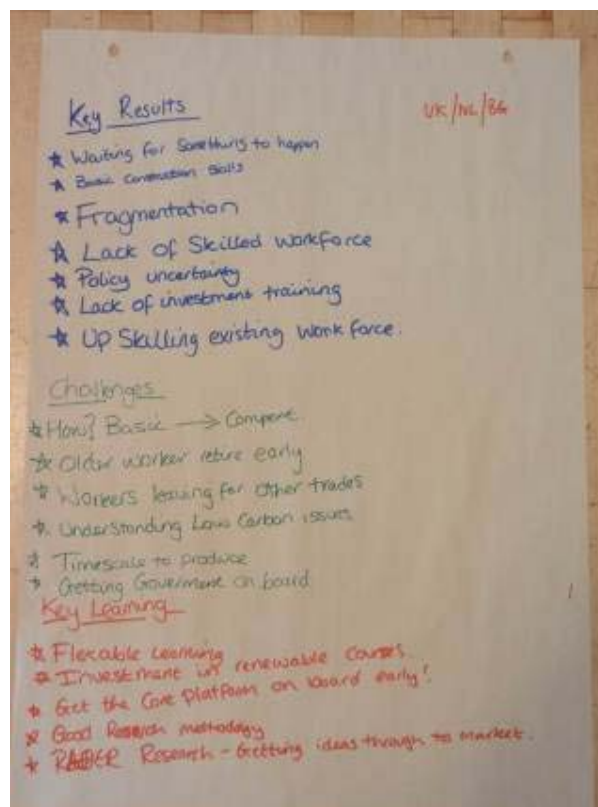 Key Results
UK/NL/BG
* Waiting for Something to happen
* Basic Construction Skills
* Fragmentation
* Lack of Skilled workforce
* Policy uncertainty
* Lack of investment training
* Up Skilling existing Work force.
Challenges
* How? Basic →
* Older worker retire early
* Workers leaving for other trades
* Understanding Low Carbon issues
* Timescale to produce
* Getting Goverment on board
Key Learning
* Flexable Learning
* Investment in renewable Courses.
* Get the Core Platform on board early!
* Good Research methodology
* Research - Getting ideas through to market.